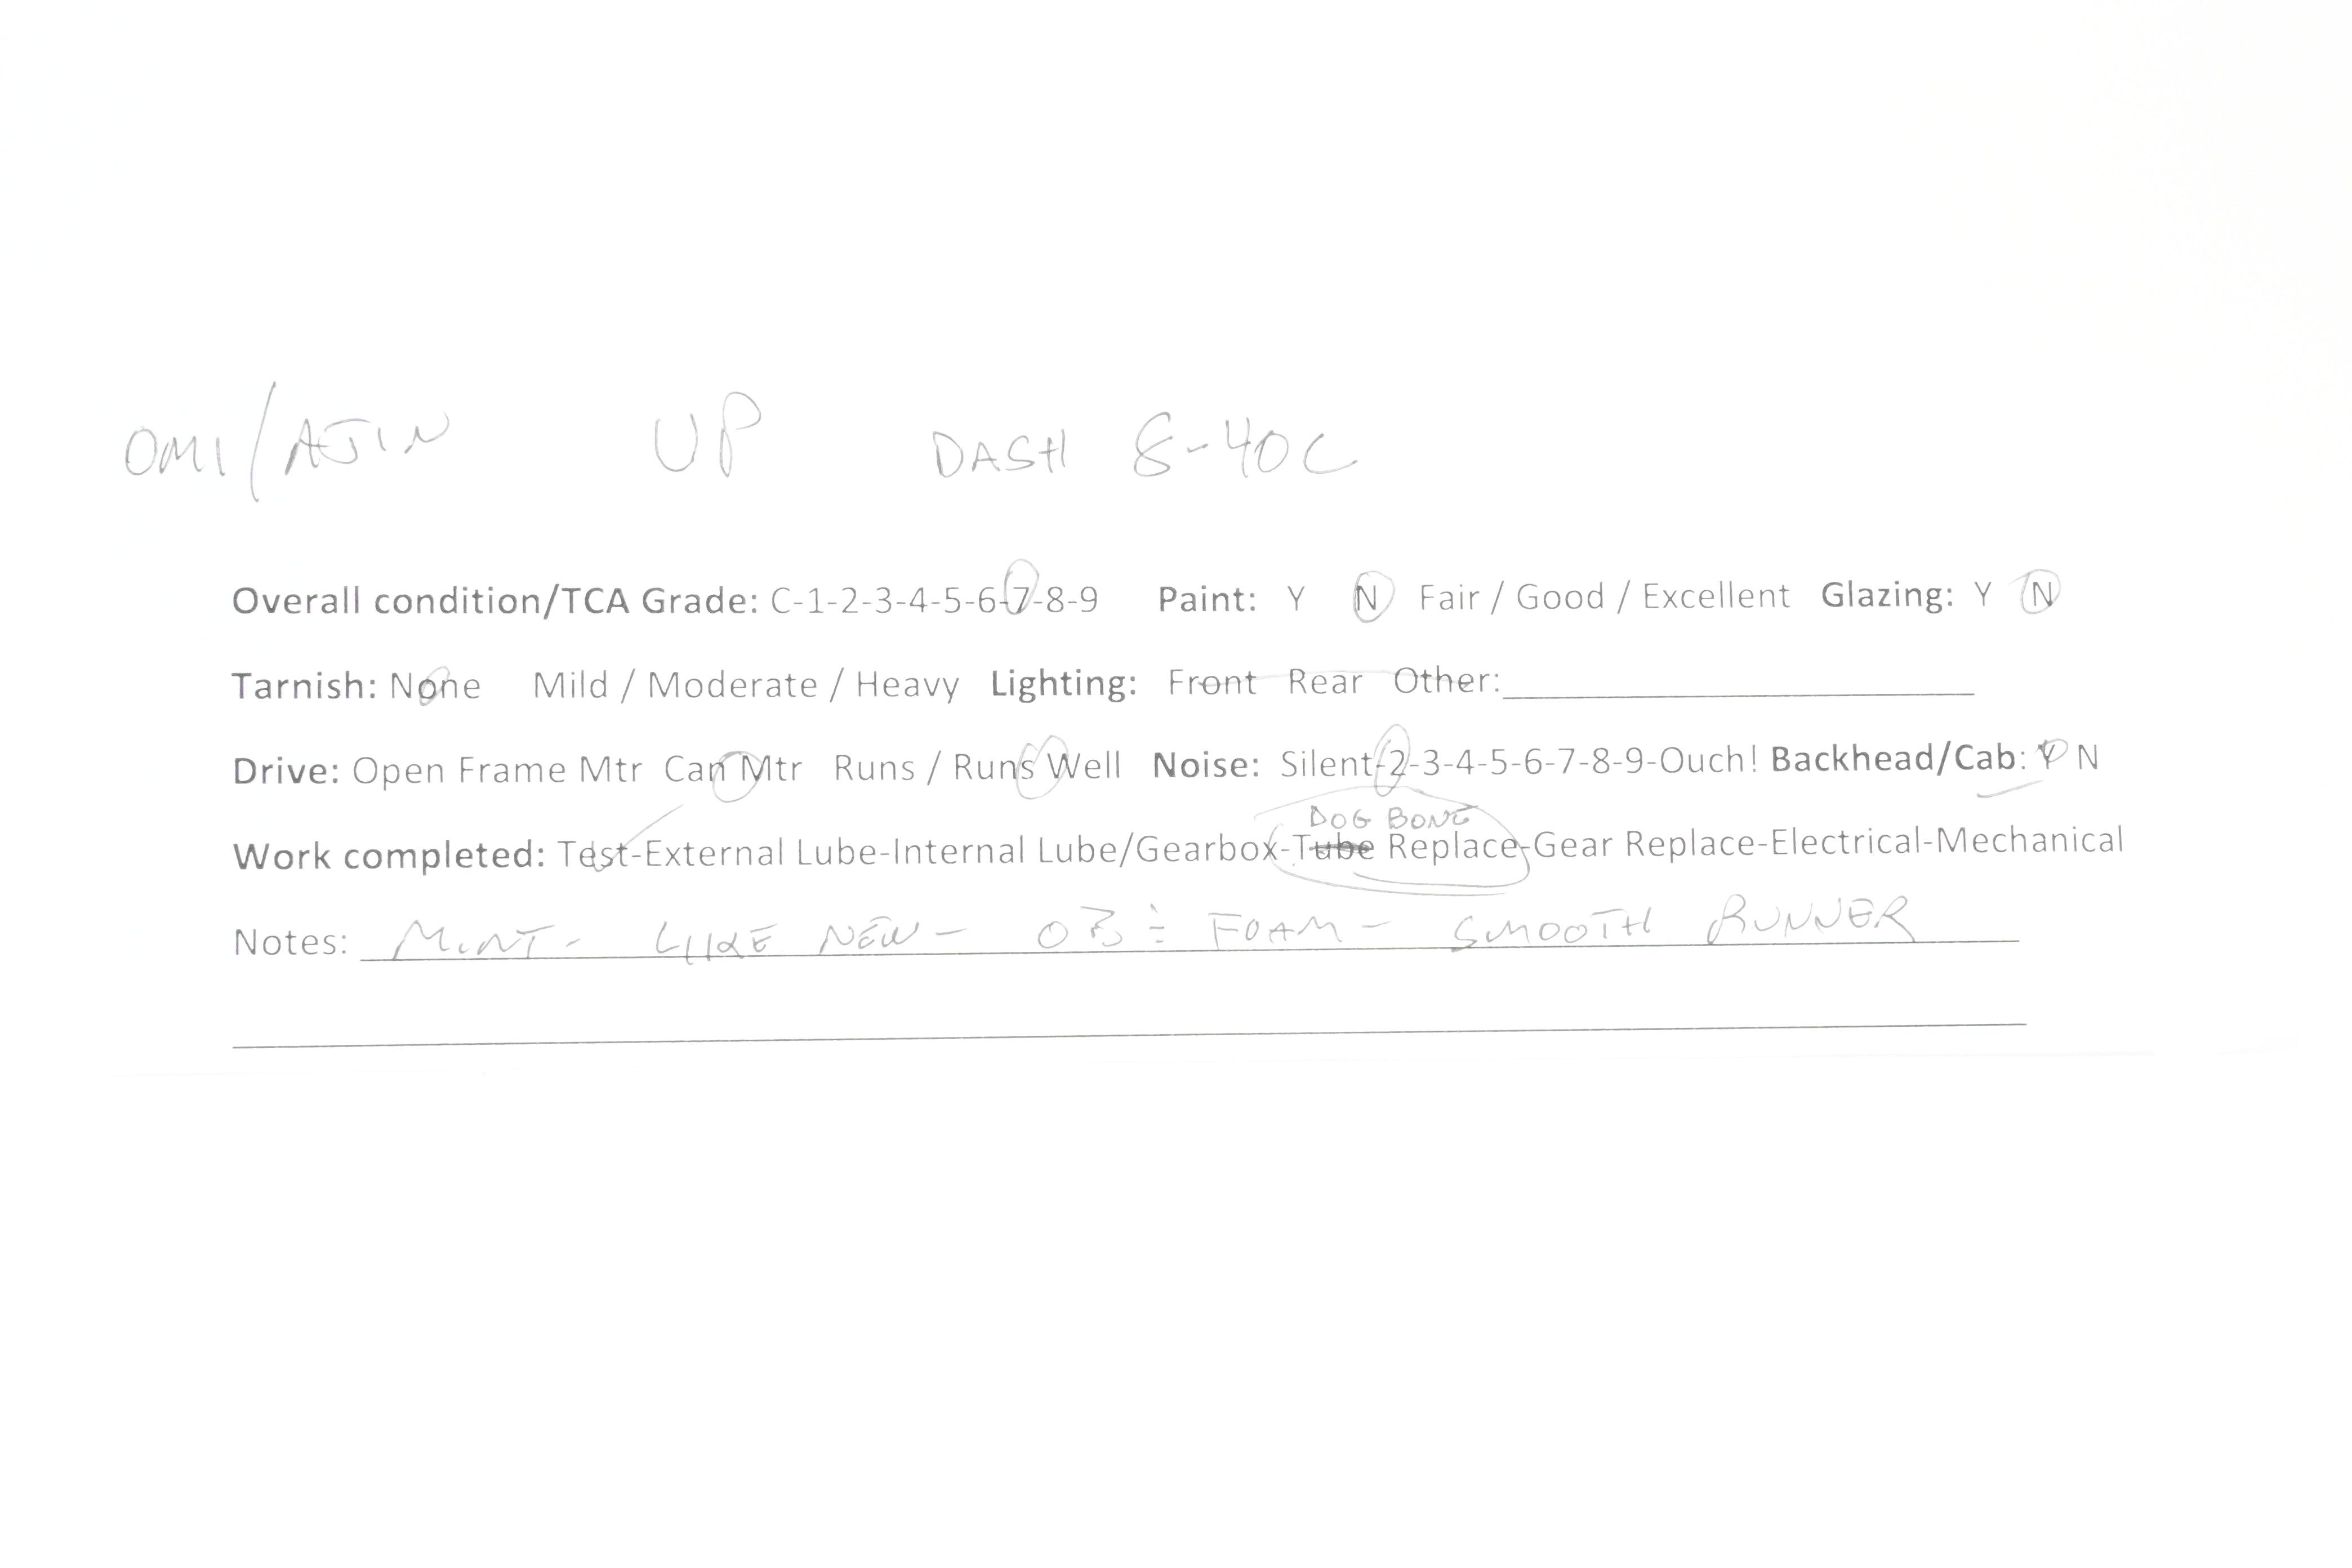 OMI/AJIN UP DASH 8-40C
Overall condition/TCA Grade: C-1-2-3-4-5-6-7-8-9 Paint: Y N Fair / Good / Excellent Glazing: Y N
Tarnish: None Mild / Moderate / Heavy Lighting: Front Rear Other:
Drive: Open Frame Mtr Can Mtr Runs / Runs Well Noise: Silent-2-3-4-5-6-7-8-9-Ouch! Backhead/Cab: Y N
DOG BONE
Work completed: Test-External Lube-Internal Lube/Gearbox-Tube Replace-Gear Replace-Electrical-Mechanical
Notes: MINT - LIKE NEW - FOAM - SMOOTH RUNNER